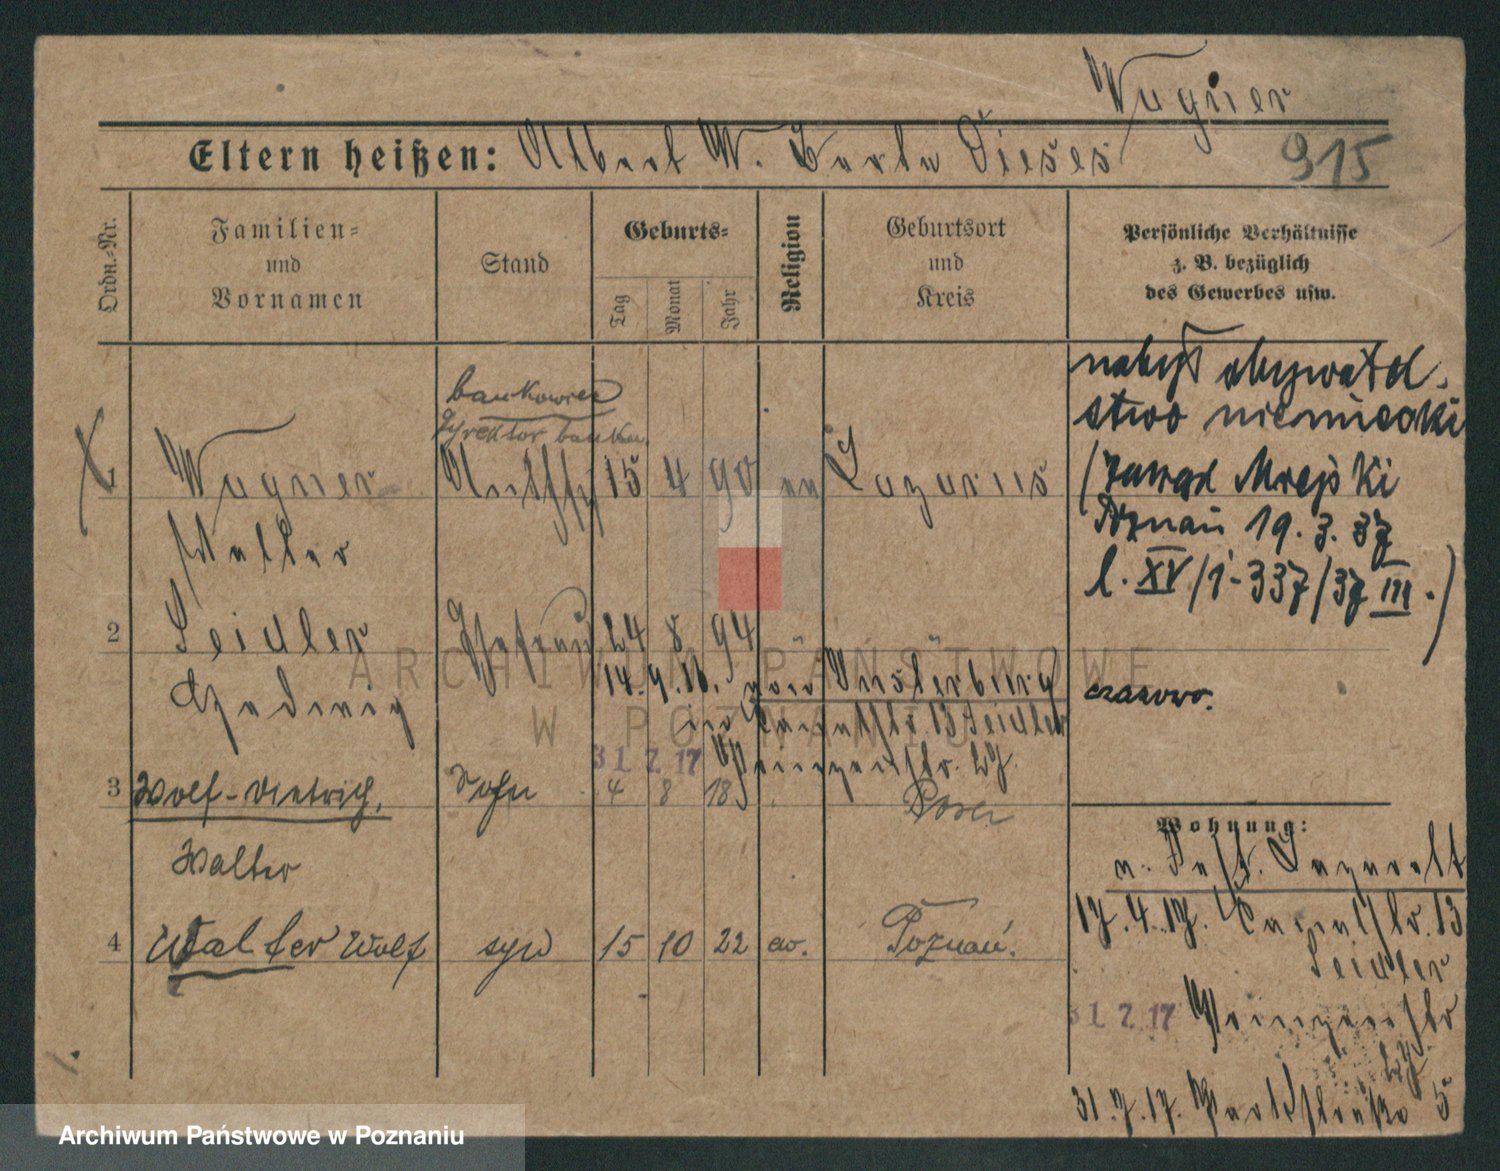 Wagner
Eltern heißen: Albert W. Berta Dieses
915
Ordn.-Nr.
Familien-
und
Vornamen
Stand
Geburts-
Tag
Monat
Jahr
Religion
Geburtsort
und
Kreis
Persönliche Verhältnisse
z. B. bezüglich
des Gewerbes usw.
bankowiec
dyrektor banku
1 Wagner 15 4 90 ev Lazarus
Walter
nabył obywatel-
stwo niemieckie
(Zarząd Miejski
Poznań 19. 3. 37
l. XV/1-337/37 III.)
2 Seidler Ehefrau 24 8 94
Hedwig 14. 4. 16. Münsterberg
13 Seidler
31 7 17
czasowo.
3 Wolf-Dietrich, Sohn 4 8 18 Posen
Walter
4 Walter Wolf syn 15 10 22 ew. Poznań.
Wohnung:
17. 4. 17. 13
Seidler
31 7 17
31. 7. 17. Parkstraße 5
ARCHIWUM PAŃSTWOWE
W POZNANIU
Archiwum Państwowe w Poznaniu